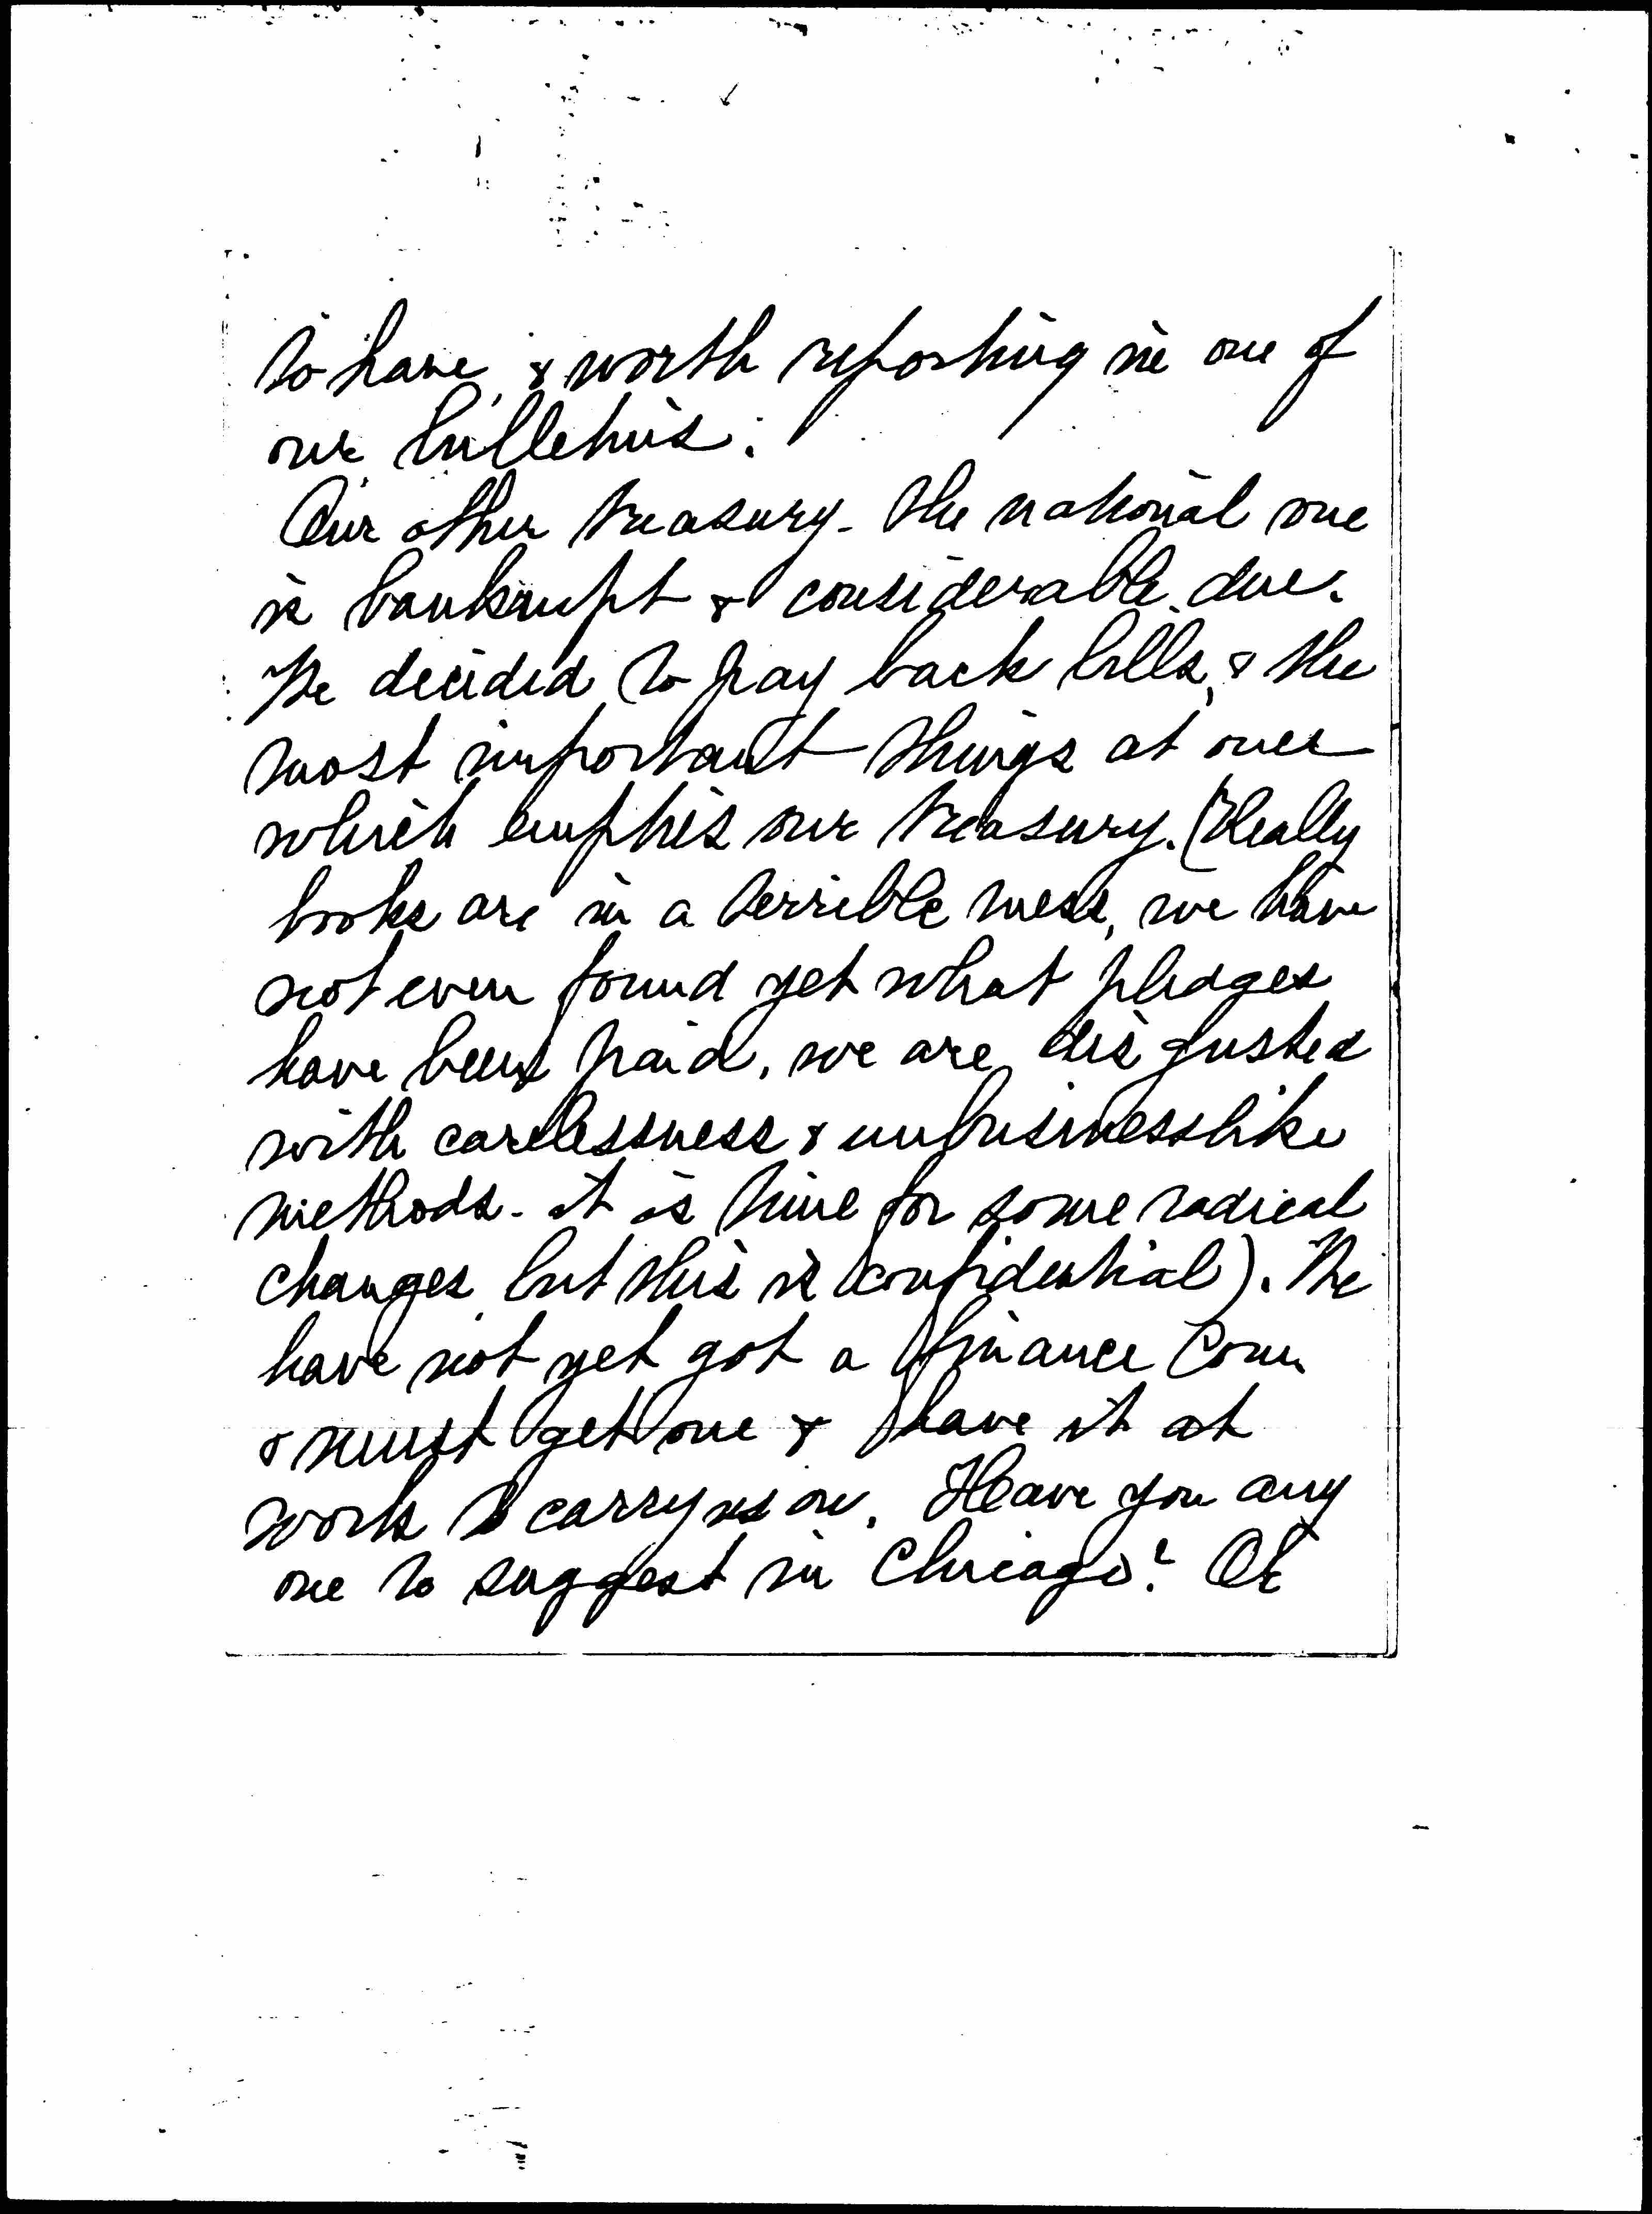 to have, & worth reporting in one of
our bulletins.
Our other treasury - the national one
is bankrupt & considerable due.
We decided to pay back bills, & the
most important things at once
which empties our treasury. (Really
books are in a terrible mess, we have
not even found yet what pledges
have been paid, we are disgusted
with carelessness & unbusinesslike
methods - it is time for some radical
changes but this is confidential). We
have not yet got a finance Com
& must get one & have it at
work to carry us on. Have you any
one to suggest in Chicago? Oh